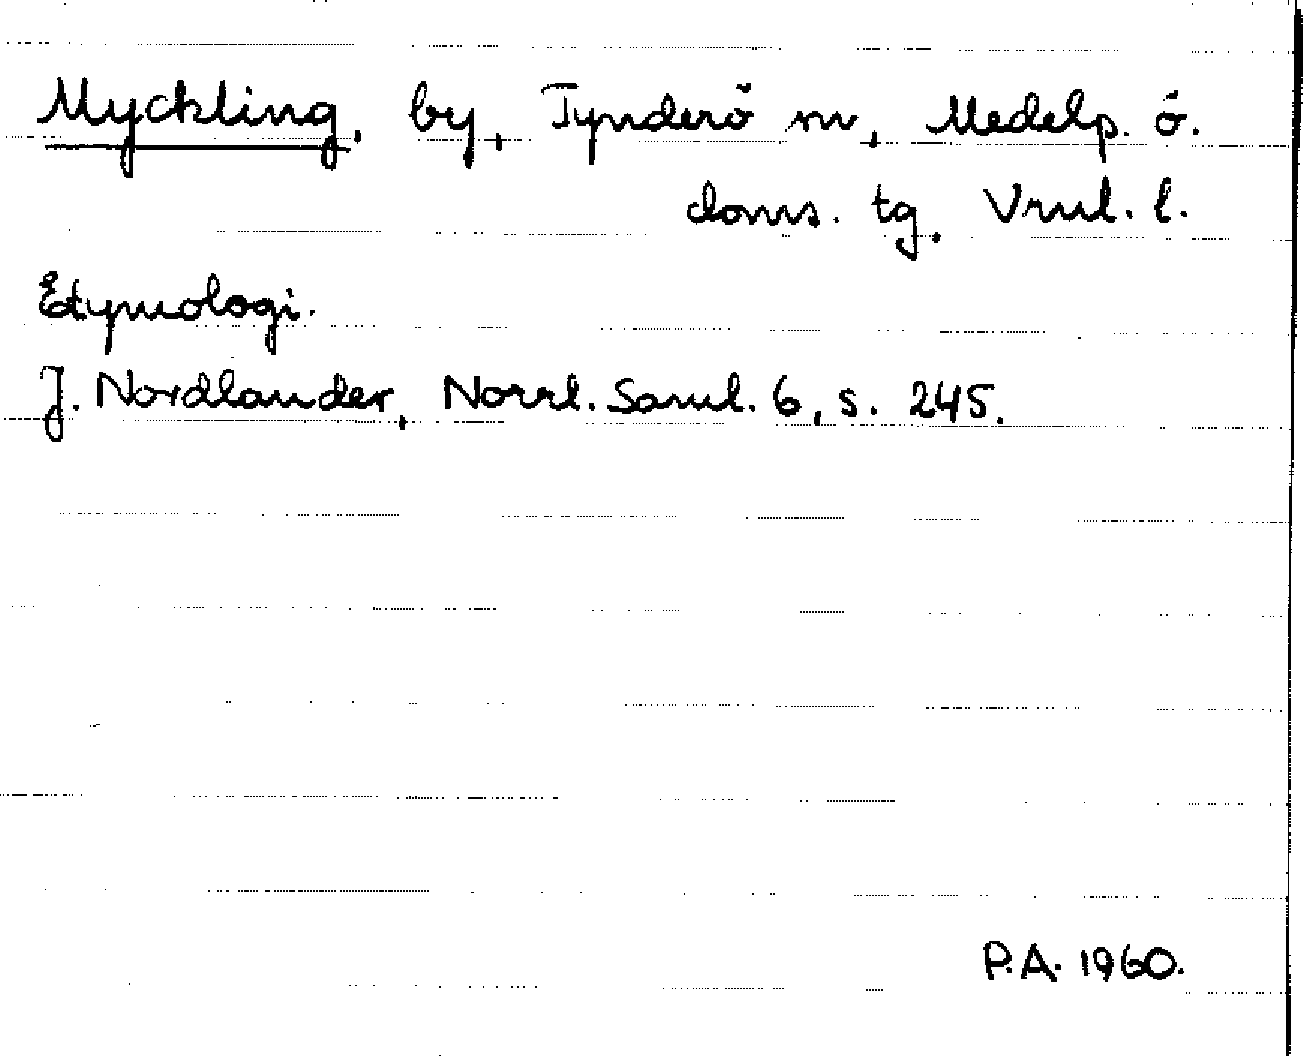 Myckling, by, Tynderö sn, Medelp. ö.
doms. tg, Vrnl. l.
Etymologi.
J. Nordlander, Norrl. Saml. 6, s. 245.
P.A. 1960.